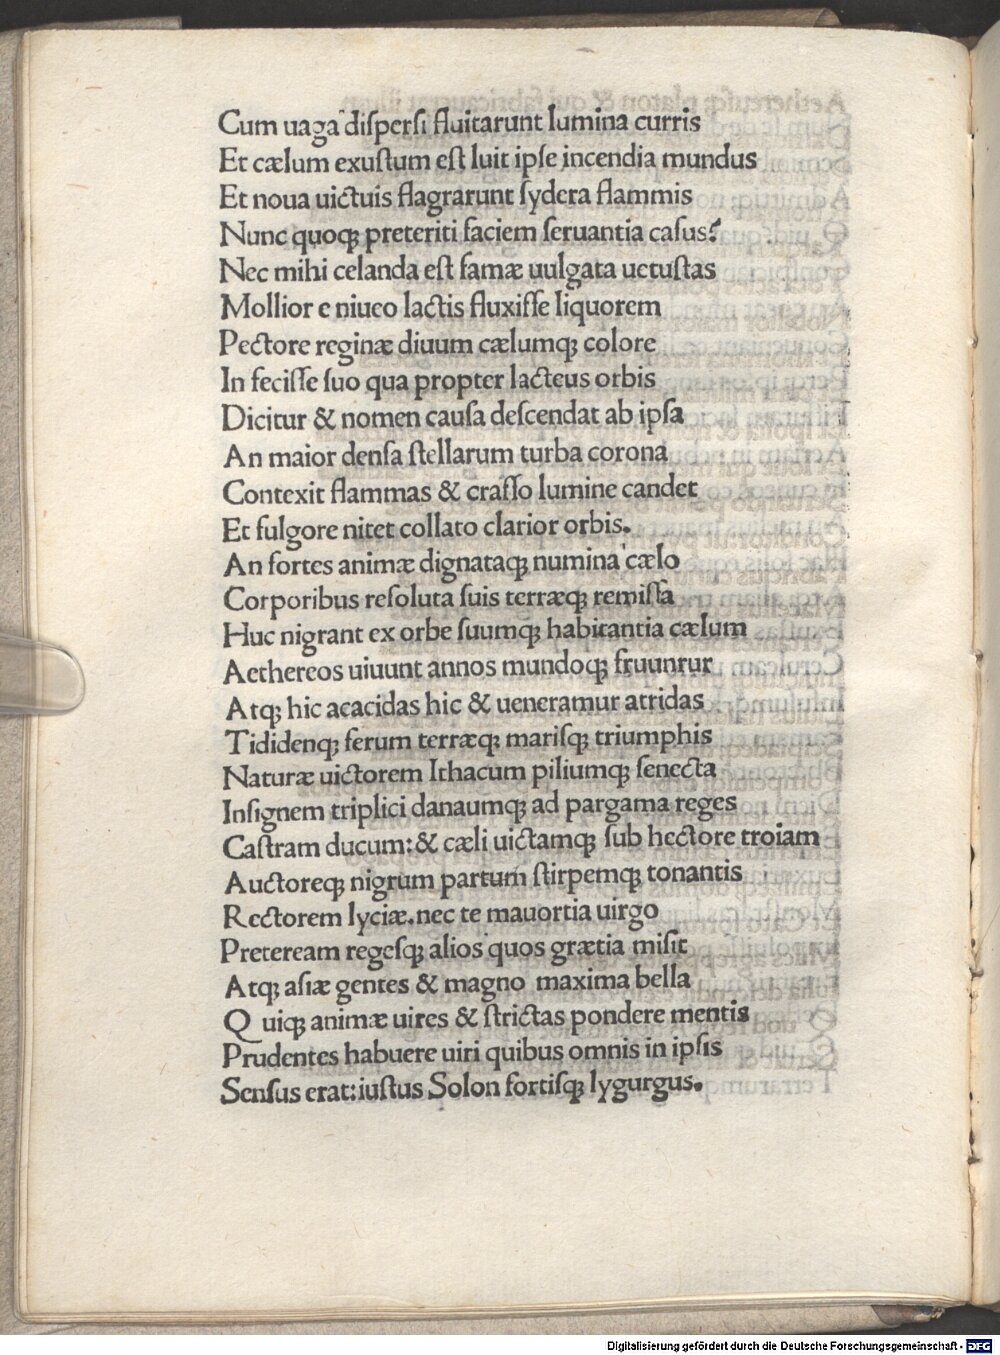 Cum uaga diſperſi fluitarunt lumina curris
Et cælum exuſtum eſt luit ipſe incendia mundus
Et noua uictuis flagrarunt ſydera flammis
Nunc quoqꝫ preteriti faciem ſeruantia caſus?
Nec mihi celanda eſt famæ uulgata uetuſtas
Mollior e niueo lactis fluxiſſe liquorem
Pectore reginæ diuum cælumqꝫ colore
In feciſſe ſuo qua propter lacteus orbis
Dicitur & nomen cauſa deſcendat ab ipſa
An maior denſa ſtellarum turba corona
Contexit flammas & craſſo lumine candet
Et fulgore nitet collato clarior orbis.
An fortes animæ dignataqꝫ numina cælo
Corporibus reſoluta ſuis terræqꝫ remiſſa
Huc nigrant ex orbe ſuumqꝫ habitantia cælum
Aethereos uiuunt annos mundoqꝫ fruunrur
Atqꝫ hic aeacidas hic & ueneramur atridas
Tididenqꝫ ferum terræqꝫ mariſqꝫ triumphis
Naturæ uictorem Ithacum piliumqꝫ ſenecta
Inſignem triplici danaumqꝫ ad pargama reges
Caſtram ducum:& cæli uictamqꝫ ſub hectore troiam
Auctoreqꝫ nigrum partum ſtirpemqꝫ tonantis
Rectorem lyciæ.nec te mauortia uirgo
Preteream regeſqꝫ alios quos grætia miſit
Atqꝫ aſiæ gentes & magno maxima bella
Q uiqꝫ animæ uires & ſtrictas pondere mentis
Prudentes habuere uiri quibus omnis in ipſis
Senſus erat:iuſtus Solon fortiſqꝫ lygurgus.
Digitalisierung gefördert durch die Deutsche Forschungsgemeinschaft - DFG